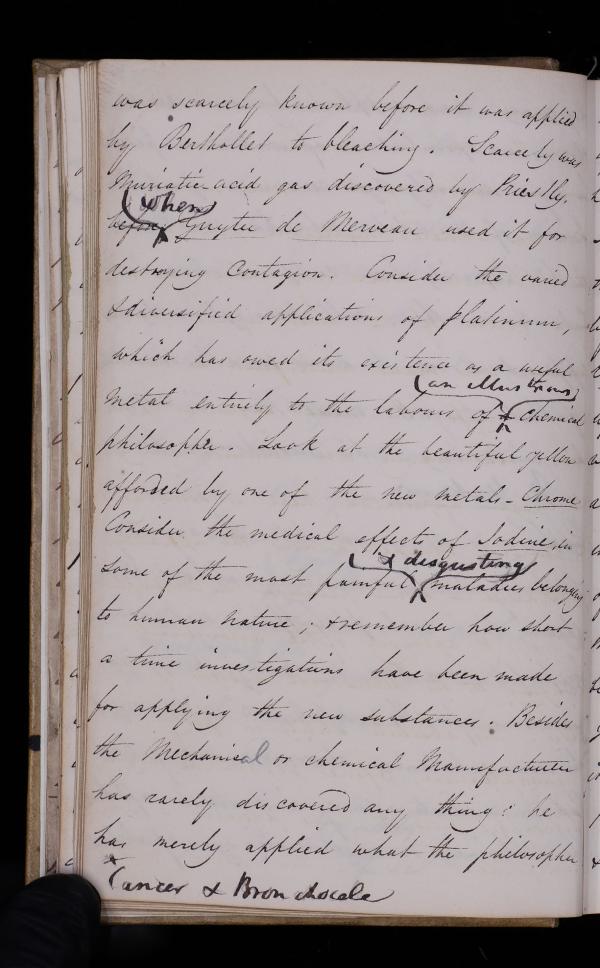 was scarcely known before it was applied
by Berthollet to bleaching. Scarcely was
Muriatic-acid gas discovered by Priestly,
(when)
before Guyton de Morveau used it for
destroying Contagion. Consider the varied
&diversified applications of platinum,
which has owed its existence as a useful
(an illustrious)
metal entirely to the labours of a chemical
philosopher. Look at the beautiful yellow
afforded by one of the new metals - Chrome
Consider the medical effects of Iodine in
(& disgusting)
some of the most painful maladies belonging
to human nature; & remember how short
a time investigations have been made
for applying the new substances. Besides
the Mechanical or chemical Manufacturer
has rarely discovered any thing: he
has merely applied what the philosopher
x Cancer & Bronchocele